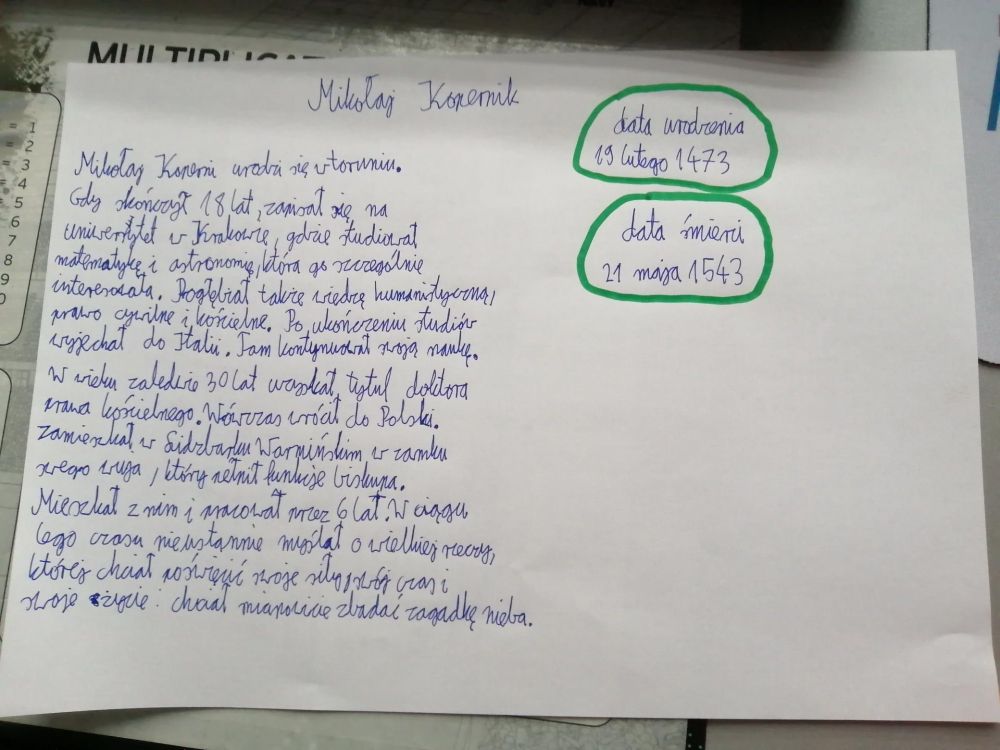 MULTIPLICAT
= 1
= 2
= 3
= 4
= 5
6
7
8
9
0
Mikołaj Kopernik
data urodzenia
19 lutego 1473
data śmierci
21 maja 1543
Mikołaj Koperni urodzi się w toruniu.
Gdy skończył 18 lat, zapisał się na
uniwersytet w Krakowie, gdzie studiował
matematykę i astronomię, która go szczególnie
interesowała. Pogłębiał także wiedzę humanistyczną,
prawo cywilne i kościelne. Po ukończeniu studiów
wyjechał do Italii. Tam kontynuował swoją naukę.
W wieku zaledwie 30 lat uzyskał tytuł doktora
prawa kościelnego. Wówczas wrócił do Polski.
Zamieszkał w Lidzbarku Warmińskim w zamku
swego wuja, który pełnił funkcje biskupa.
Mieszkał z nim i pracował przez 6 lat. W ciągu
tego czasu nieustannie myślał o wielkiej rzeczy,
której chciał poświęcić swoje siły, swój czas i
swoje życie: chciał mianowicie zbadać zagadkę nieba.